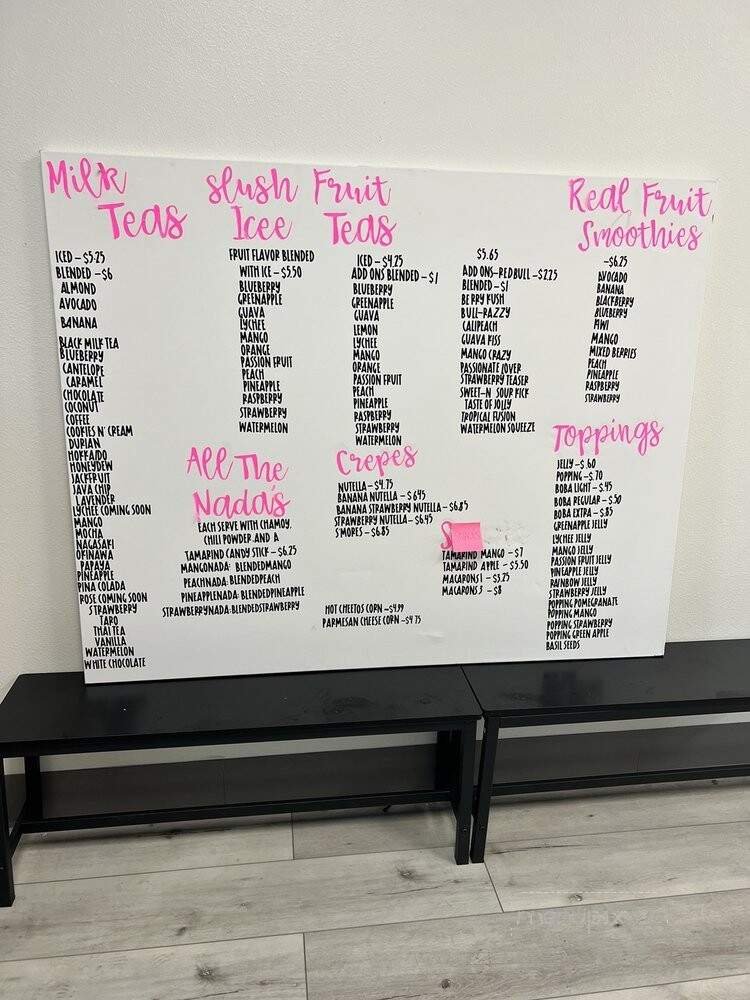 Milk
Teas
ICED - $5.25
BLENDED - $6
ALMOND
AVOCADO
BANANA
BLACK MILK TEA
BLUEBERRY
CANTELOPE
CARAMEL
CHOCOLATE
COCONUT
COFFEE
COOKIES N' CREAM
DURIAN
HOKKAIDO
HONEYDEW
JACKFRUIT
JAVA CHIP
LAVENDER
LYCHEE COMING SOON
MANGO
MOCHA
NAGASAKI
OKINAWA
PAPAYA
PINEAPPLE
PINA COLADA
ROSE COMING SOON
STRAWBERRY
TARO
THAI TEA
VANILLA
WATERMELON
WHITE CHOCOLATE
slush
Icee
FRUIT FLAVOR BLENDED
WITH ICE - $5.50
BLUEBERRY
GREENAPPLE
GUAVA
LYCHEE
MANGO
ORANGE
PASSION FRUIT
PEACH
PINEAPPLE
RASPBERRY
STRAWBERRY
WATERMELON
Fruit
Teas
ICED - $4.25
ADD ONS BLENDED - $1
BLUEBERRY
GREENAPPLE
GUAVA
LEMON
LYCHEE
MANGO
ORANGE
PASSION FRUIT
PEACH
PINEAPPLE
RASPBERRY
STRAWBERRY
WATERMELON
$5.65
ADD ONS-REDBULL - $2.25
BLENDED - $1
BERRY KUSH
BULL-RAZZY
CALIPEACH
GUAVA KISS
MANGO CRAZY
PASSIONATE LOVER
STRAWBERRY TEASER
SWEET-N SOUR KICK
TASTE OF JOLLY
TROPICAL FUSION
WATERMELON SQUEEZE
Real Fruit
Smoothies
-$6.25
AVOCADO
BANANA
BLACKBERRY
BLUEBERRY
KIWI
MANGO
MIXED BERRIES
PEACH
PINEAPPLE
RASPBERRY
STRAWBERRY
All The
Nada's
EACH SERVE WITH CHAMOY,
CHILI POWDER AND A
TAMARIND CANDY STICK - $6.25
MANGONADA: BLENDEDMANGO
PEACHNADA: BLENDEDPEACH
PINEAPPLENADA: BLENDEDPINEAPPLE
STRAWBERRYNADA:BLENDEDSTRAWBERRY
Crepes
NUTELLA - $4.75
BANANA NUTELLA - $6.45
BANANA STRAWBERRY NUTELLA - $6.85
STRAWBERRY NUTELLA - $6.45
S'MORES - $6.85
HOT CHEETOS CORN - $4.99
PARMESAN CHEESE CORN - $4.75
S
TAMARIND MANGO - $7
TAMARIND APPLE - $5.50
MACARONS 1 - $3.25
MACARONS 3 - $8
Toppings
JELLY - $.60
POPPING - $.70
BOBA LIGHT - $.45
BOBA REGULAR - $.50
BOBA EXTRA - $.85
GREENAPPLE JELLY
LYCHEE JELLY
MANGO JELLY
PASSION FRUIT JELLY
PINEAPPLE JELLY
RAINBOW JELLY
STRAWBERRY JELLY
POPPING POMEGRANATE
POPPING MANGO
POPPING STRAWBERRY
POPPING GREEN APPLE
BASIL SEEDS